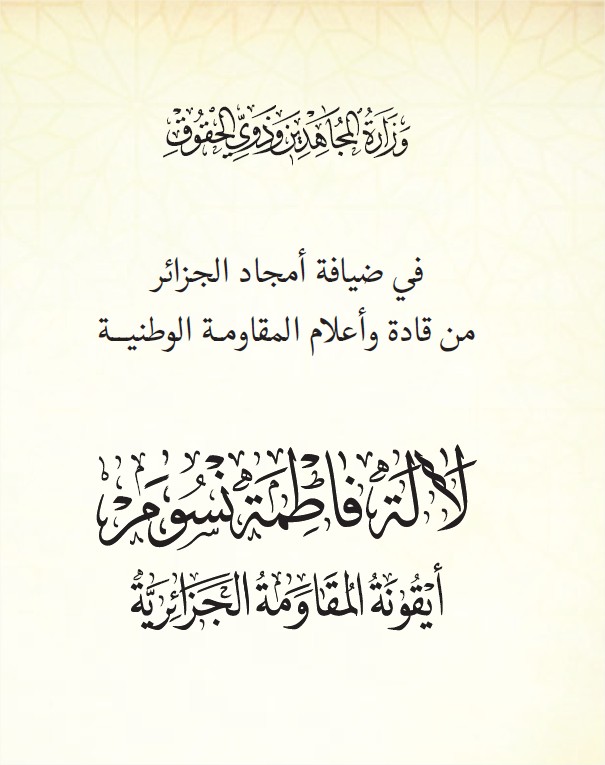 وَزَارَةُ المُجَاهِدِينَ وَذَوِي الحُقُوقِ
في ضيافة أمجاد الجزائر
من قادة وأعلام المقاومة الوطنيــة
لَالَّة فَاطِمَة نْسُومَرْ
أَيْقُونَةُ المُقَاوَمَةُ الجَزَائِرِيَّة